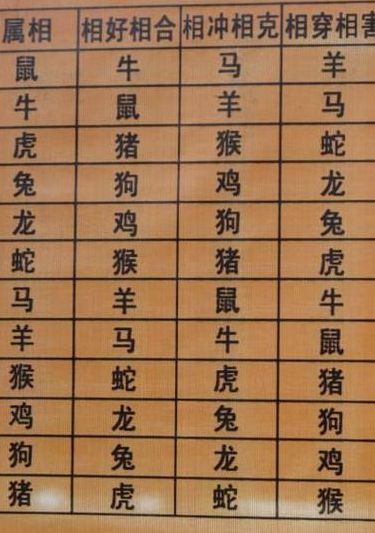 属相 相好相合 相冲相克 相穿相害
鼠 牛 马 羊
牛 鼠 羊 马
虎 猪 猴 蛇
兔 狗 鸡 龙
龙 鸡 狗 兔
蛇 猴 猪 虎
马 羊 鼠 牛
羊 马 牛 鼠
猴 蛇 虎 猪
鸡 龙 兔 狗
狗 兔 龙 鸡
猪 虎 蛇 猴